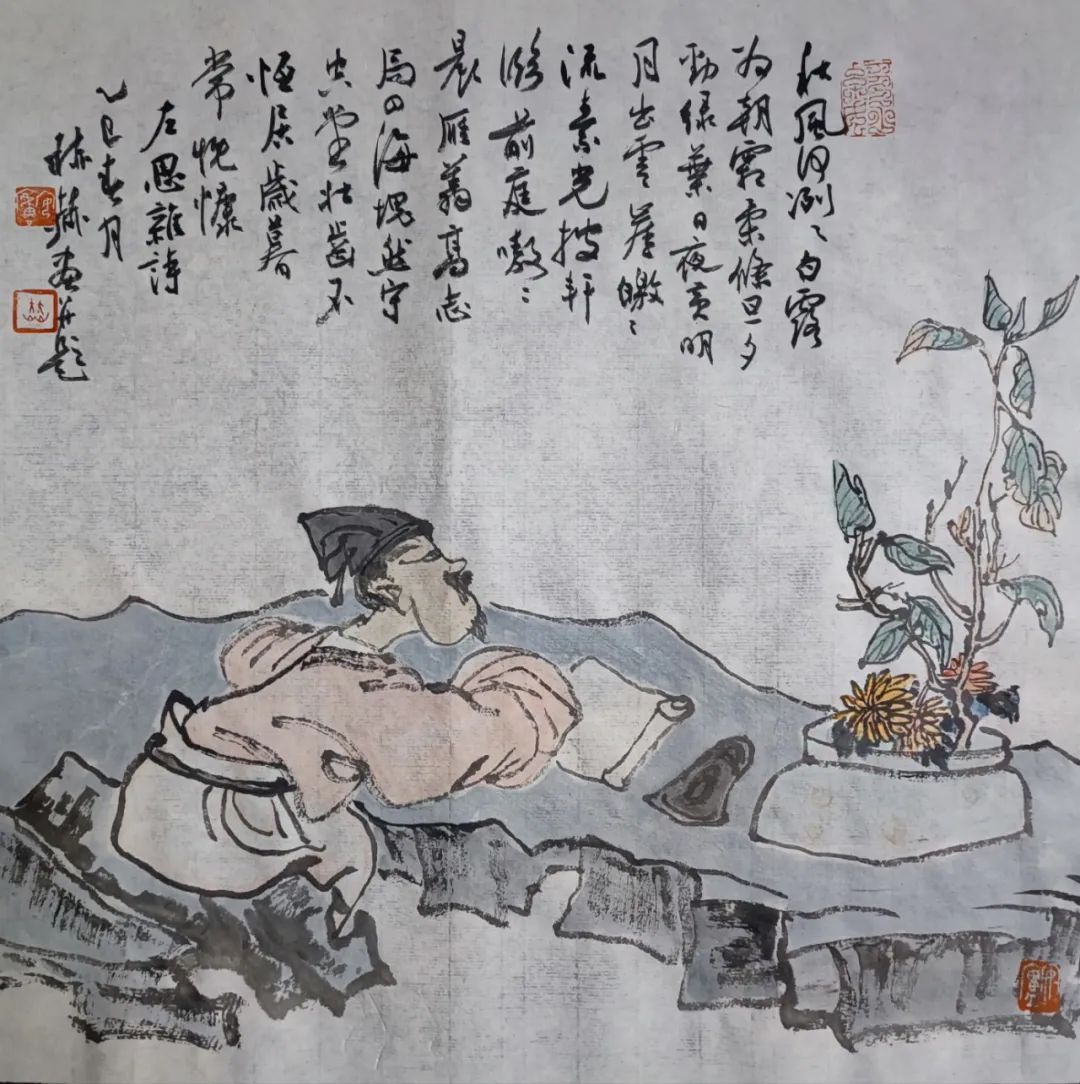 秋風何冽〻白露
为朝霜柔條旦夕
勁绿葉日夜黄明
月出雲崖皦〻
流素光披軒
臨前庭嗷〻
晨雁翔高志
局四海塊然守
空堂壮齒不
恒居歲暮
常慨慷
左思雜詩
乙巳春月
画并题